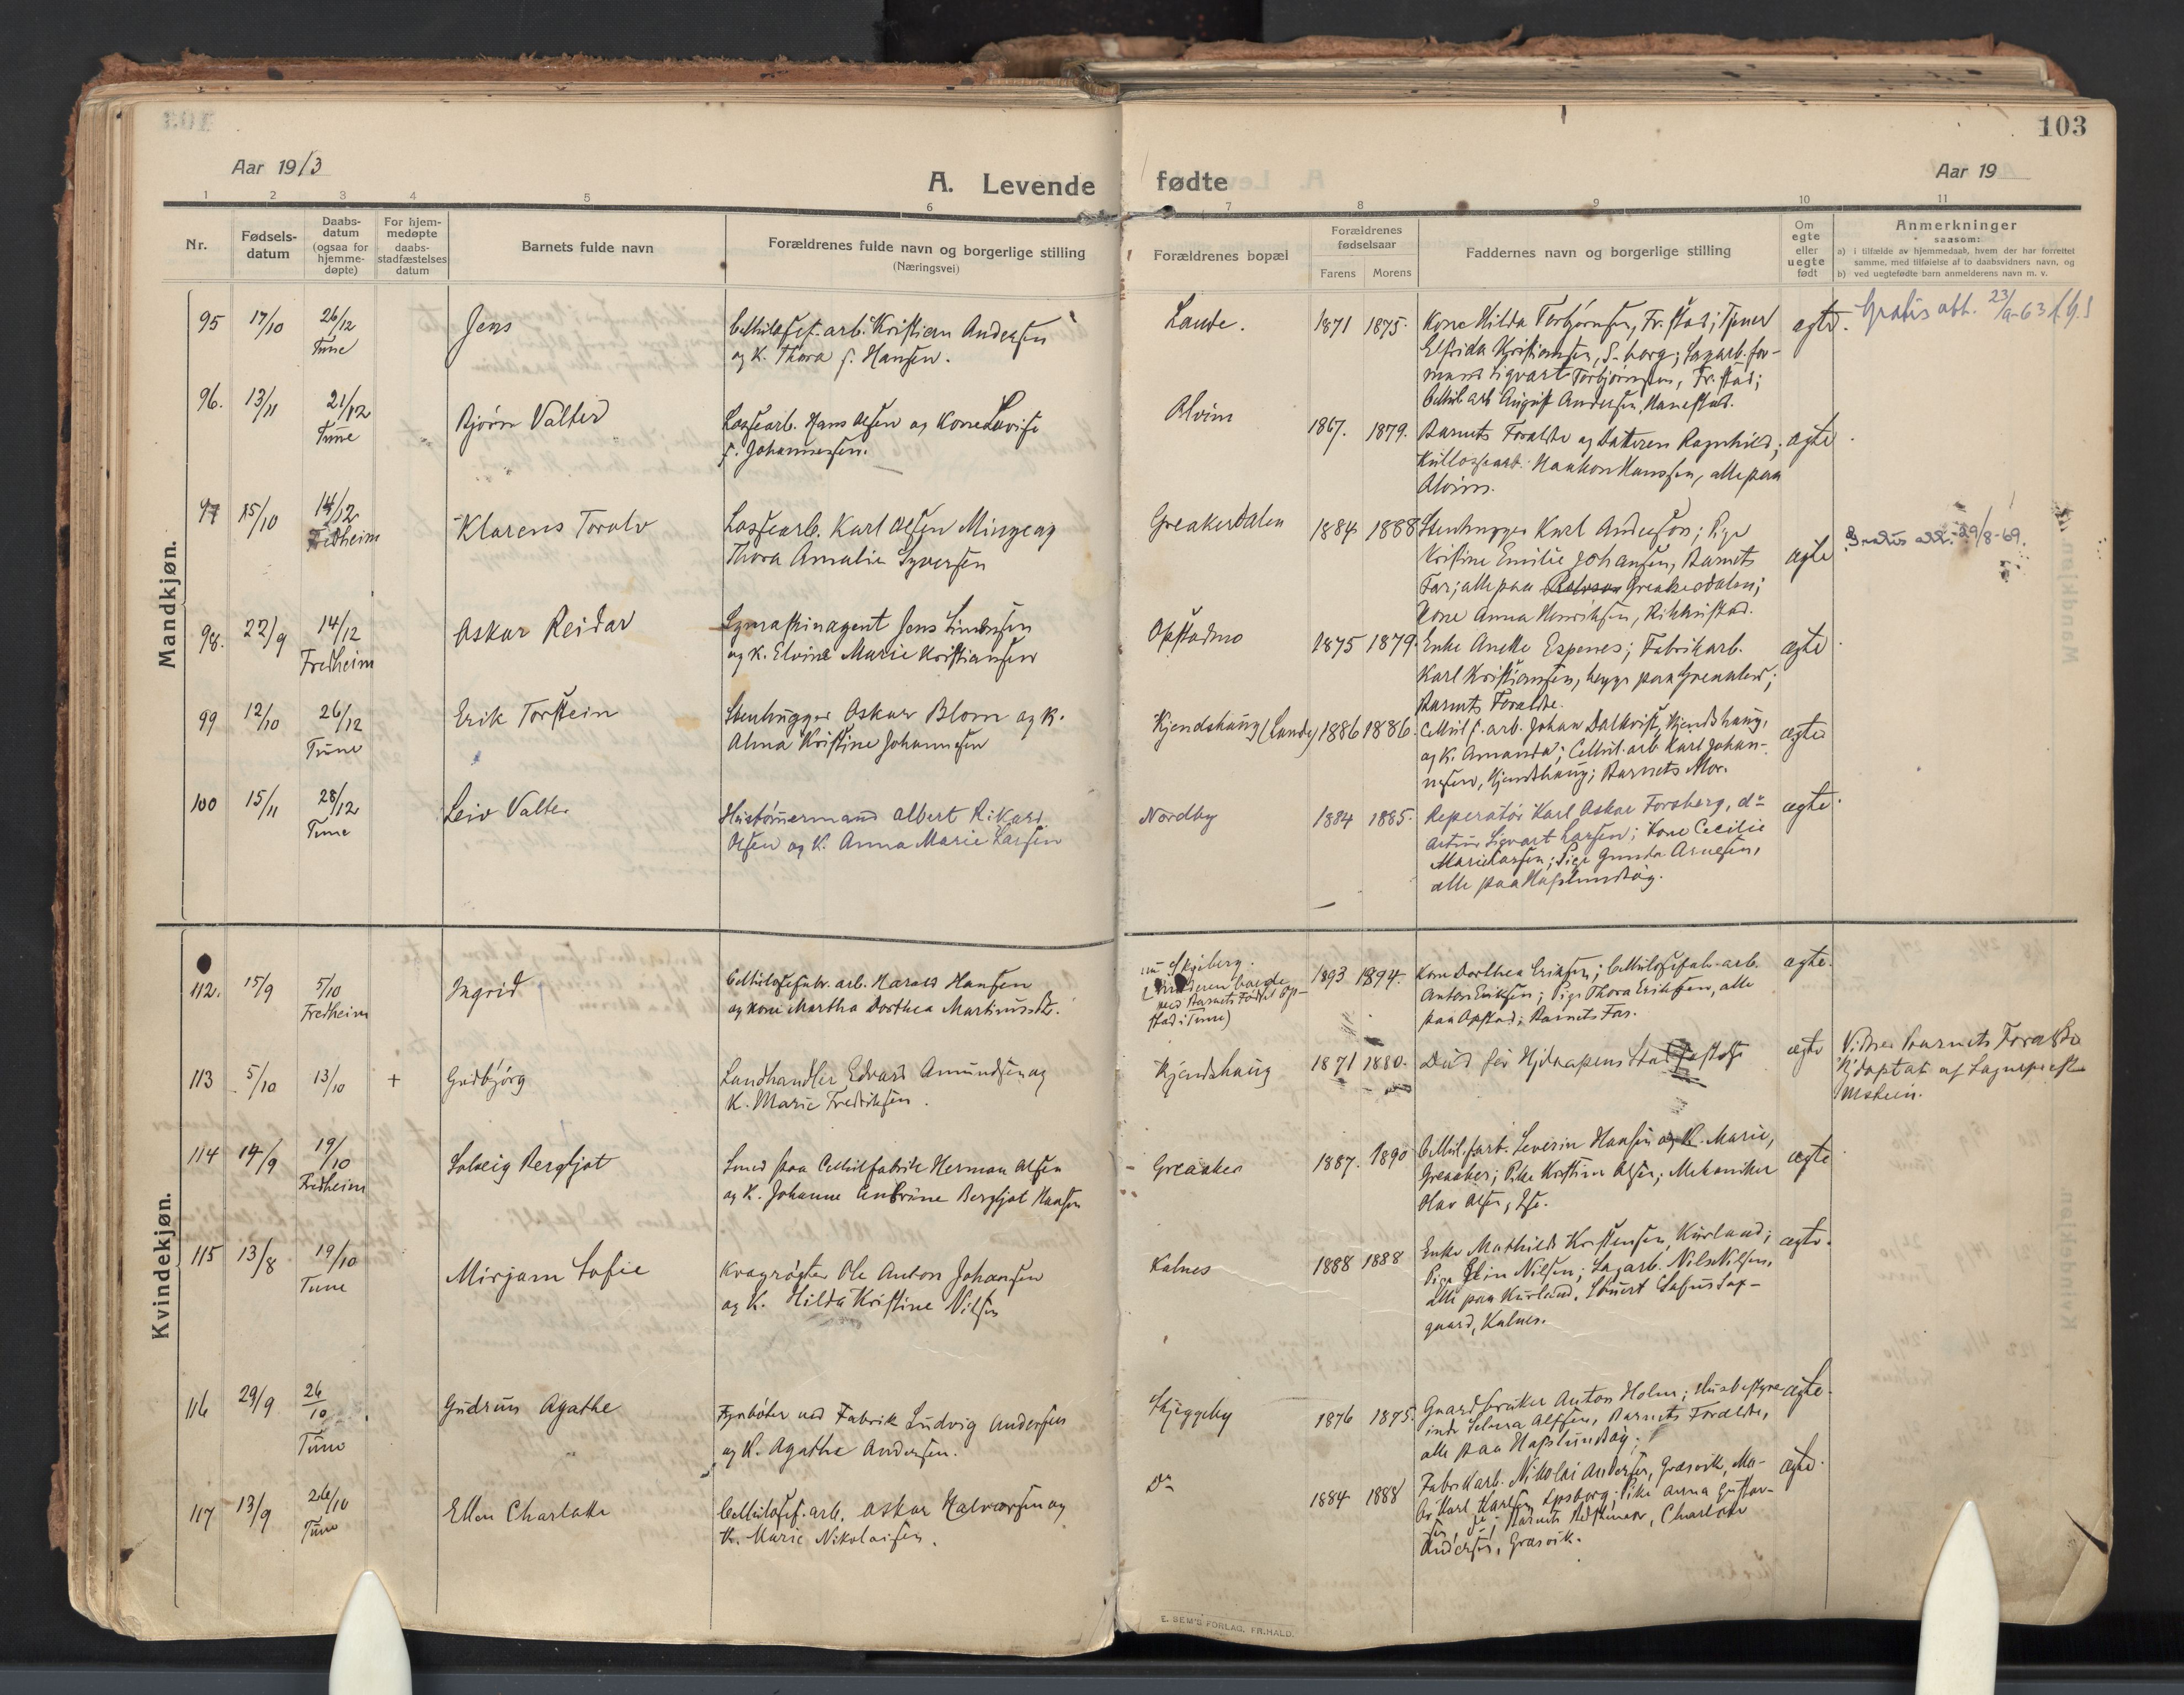 103
Aar 1913
A. Levende fødte
Aar 19
1 2 3 4 5 6 7 8 9 10 11
Nr.
Fødsels-
datum
Daabs-
datum
(ogsaa for
hjemme-
døpte)
For hjem-
medøpte
daabs-
stadfæstelses
datum
Barnets fulde navn
Forældrenes fulde navn og borgerlige stilling
(Næringsvei)
Forældrenes bopæl
Forældrenes
fødselsaar
Farens Morens
Faddernes navn og borgerlige stilling
Om
egte
eller
uegte
født
Anmerkninger
saasom:
a) i tilfælde av hjemmedaab, hvem der har forrettet
samme, med tilføielse af to daabsvidners navn, og
b) ved uegtefødte barn anmelderens navn m. v.
Mandkjøn.
95 17/10 26/12 Tune
Jens
Cellulosef. arb. Kristian Andersen
og K. Thora f. Hansen.
Lande. 1871 1875.
Kone Hilda Torbjørnsen, Fr.stad; Tjener
Elfrida Kristiansen, S-borg; Sagarb. for-
mand Sigvart Torbjørnsen, Fr.stad;
Cellul. arb August Andersen, Hanestad.
egte.
Gratis att. 23/9-63
96. 13/11 21/12 Tune
Bjørn Valter
Lossearb. Hans Olsen og Kone Lovise
f. Johannessen.
Alvim 1867. 1879.
Barnets Forældre og Datteren Ragnhild;
Haakon Hanssen, alle paa
Alvim.
egte
97 15/10 14/12 Fredheim
Klarens Toralv
Lossearb. Karl Olsen Minge og
Thora Amalie Syversen
Greakerdalen 1884 1888
Stenhugger Karl Anderson; Pige
Kristine Emilie Johansen, Barnets
Far; alle paa Greakerdalen;
Kone Anna Henriksen, Kikkristad.
egte
Gratis att. 29/8-69.
98. 22/9 14/12 Fredheim
Askar Reidar
Symaskinagent Jens
og K. Elvine Marie Kristiansen
Opstadmo 1875 1879.
Enke Anette Espenes; Fabrikarb.
Karl Kristiansen, begge paa Greaaker;
Barnets Forældre.
egte
99 12/10 26/12 Tune
Erik Torstein
Stenhugger Oskar Blom og K.
Alma Kristine Johannesen
Kjendshaug (Lande) 1886 1886.
Cellul f. arb. Johan Dalkvist, Kjendshaug,
og K. Amanda; Cellul. arb Karl Johan-
nesen, Kjendshaug; Barnets Mor.
egte
100 15/11 28/12 Tune
Leiv Valter
Hustømmermand Albert Rikard
Olsen og K. Anna Marie Larsen
Nordby 1884 1885.
Reperatør Karl Askar Forsberg, do
Artur Sigvart Larsen; Kone Cecilie
Marie Larsen; Pige Gunda Arnesen,
alle paa Hafslundsøy.
egte
Kvindekjøn.
112. 15/9 5/10 Fredheim
Ingrid
Cellulosefabr. arb. Harald Hansen
og Kone Martha Dorthea Martinusdtr.
nu Skjeberg.
(Moderen boede
ved Barnets Fødsel Op-
stad i Tune)
1893 1894.
Kone Dorthea Eriksen; Cellulosefab. arb.
Anton Eriksen; Pige Thora Eriksen, alle
paa Opstad; Barnets Far.
egte.
113 5/10 13/10 +
Gudbjørg
Landhandler Edvard Amundsen og
K. Marie Fredriksen.
Kjendshaug 1871 1880.
Død før Hjdaapens Stadfæstelse
egte
Vidner Barnets Forældre
114 14/9 19/10 Fredheim
Solveig Bergljot
Smed paa Cellulfabrik Herman Olsen
og K. Johanne Bergljot Hansen
Greaaker 1887. 1890
Cellul. f. arb. Severin Hansen og K. Marie,
Greaaker; Pike Kristine Olsen; Mekaniker
Olav Olsen,
egte
115 13/8 19/10 Tune
Mirjam Sofie
Kvægrøgter Ole Anton Johansen
og K. Hilda Kristine Nilsen
Kalnes 1888 1888
Enke Mathilde Kristensen, Kurland;
Pige Nilsen; Sagarb. Nils Nilsen,
alle paa Kurland.
gaard, Kalnes.
egte.
116 29/9 26/10 Tune
Gudrun Agathe
Fyrbøter ved Fabrik Ludvig Andersen
og K. Agathe Andersen.
Skjeggeby 1876 1875.
Gaardbruker Anton Holm; Husbestyre-
inde Selma Barnets Forældre,
alle paa Hafslundsøy;
egte.
117 13/9 26/10 Tune
Ellen Charlotte
Cellulosef. arb. Oskar Halvorsen og
K. Marie Nikolaisen.
Do 1884 1888
Fabrikarb. Nikolai Andersen, Græsvik, Ma-
Karl Karlsen Lysborg; Pike Anna Gustav-
sen, Barnets Charlotte
Andersen, Græsvik.
egte.
E. SEM'S FORLAG, FR.HALD.